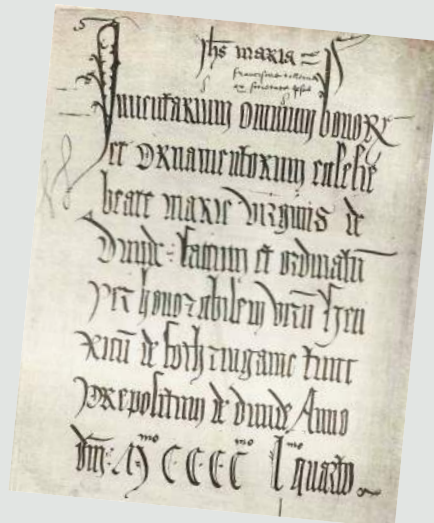 Jhs maria
Inuentarium omnium bonorum
et ornamentorum ecclesie
beate marie virginis de
factum et ordinatum
per honorabilem virum Hen
ricum de tunc
prepositum de Anno
dni Mmo CCCCmo Lmo quarto